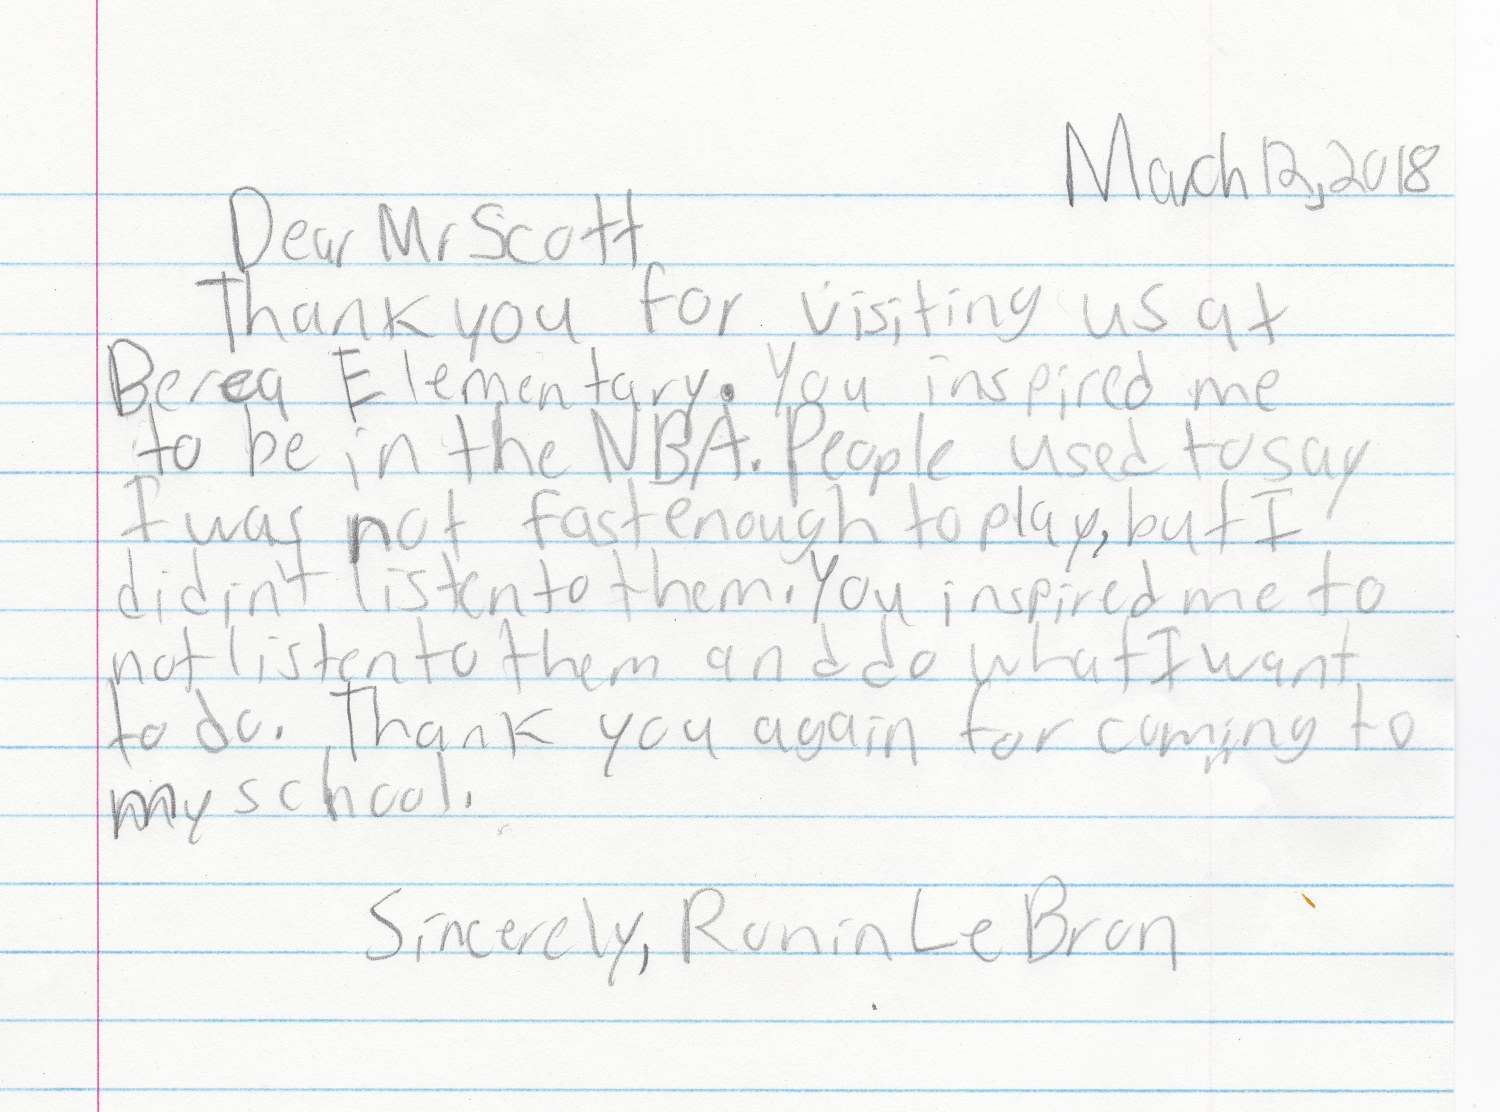 March 12, 2018
Dear Mr Scott
Thank you for visiting us at
Berea Elementary. You inspired me
to be in the NBA. People used to say
I was not fast enough to play, but I
didin't listen to them. You inspired me to
not listen to them and do what I want
to do. Thank you again for coming to
my school.
Sincerely, Ronin Le Bron